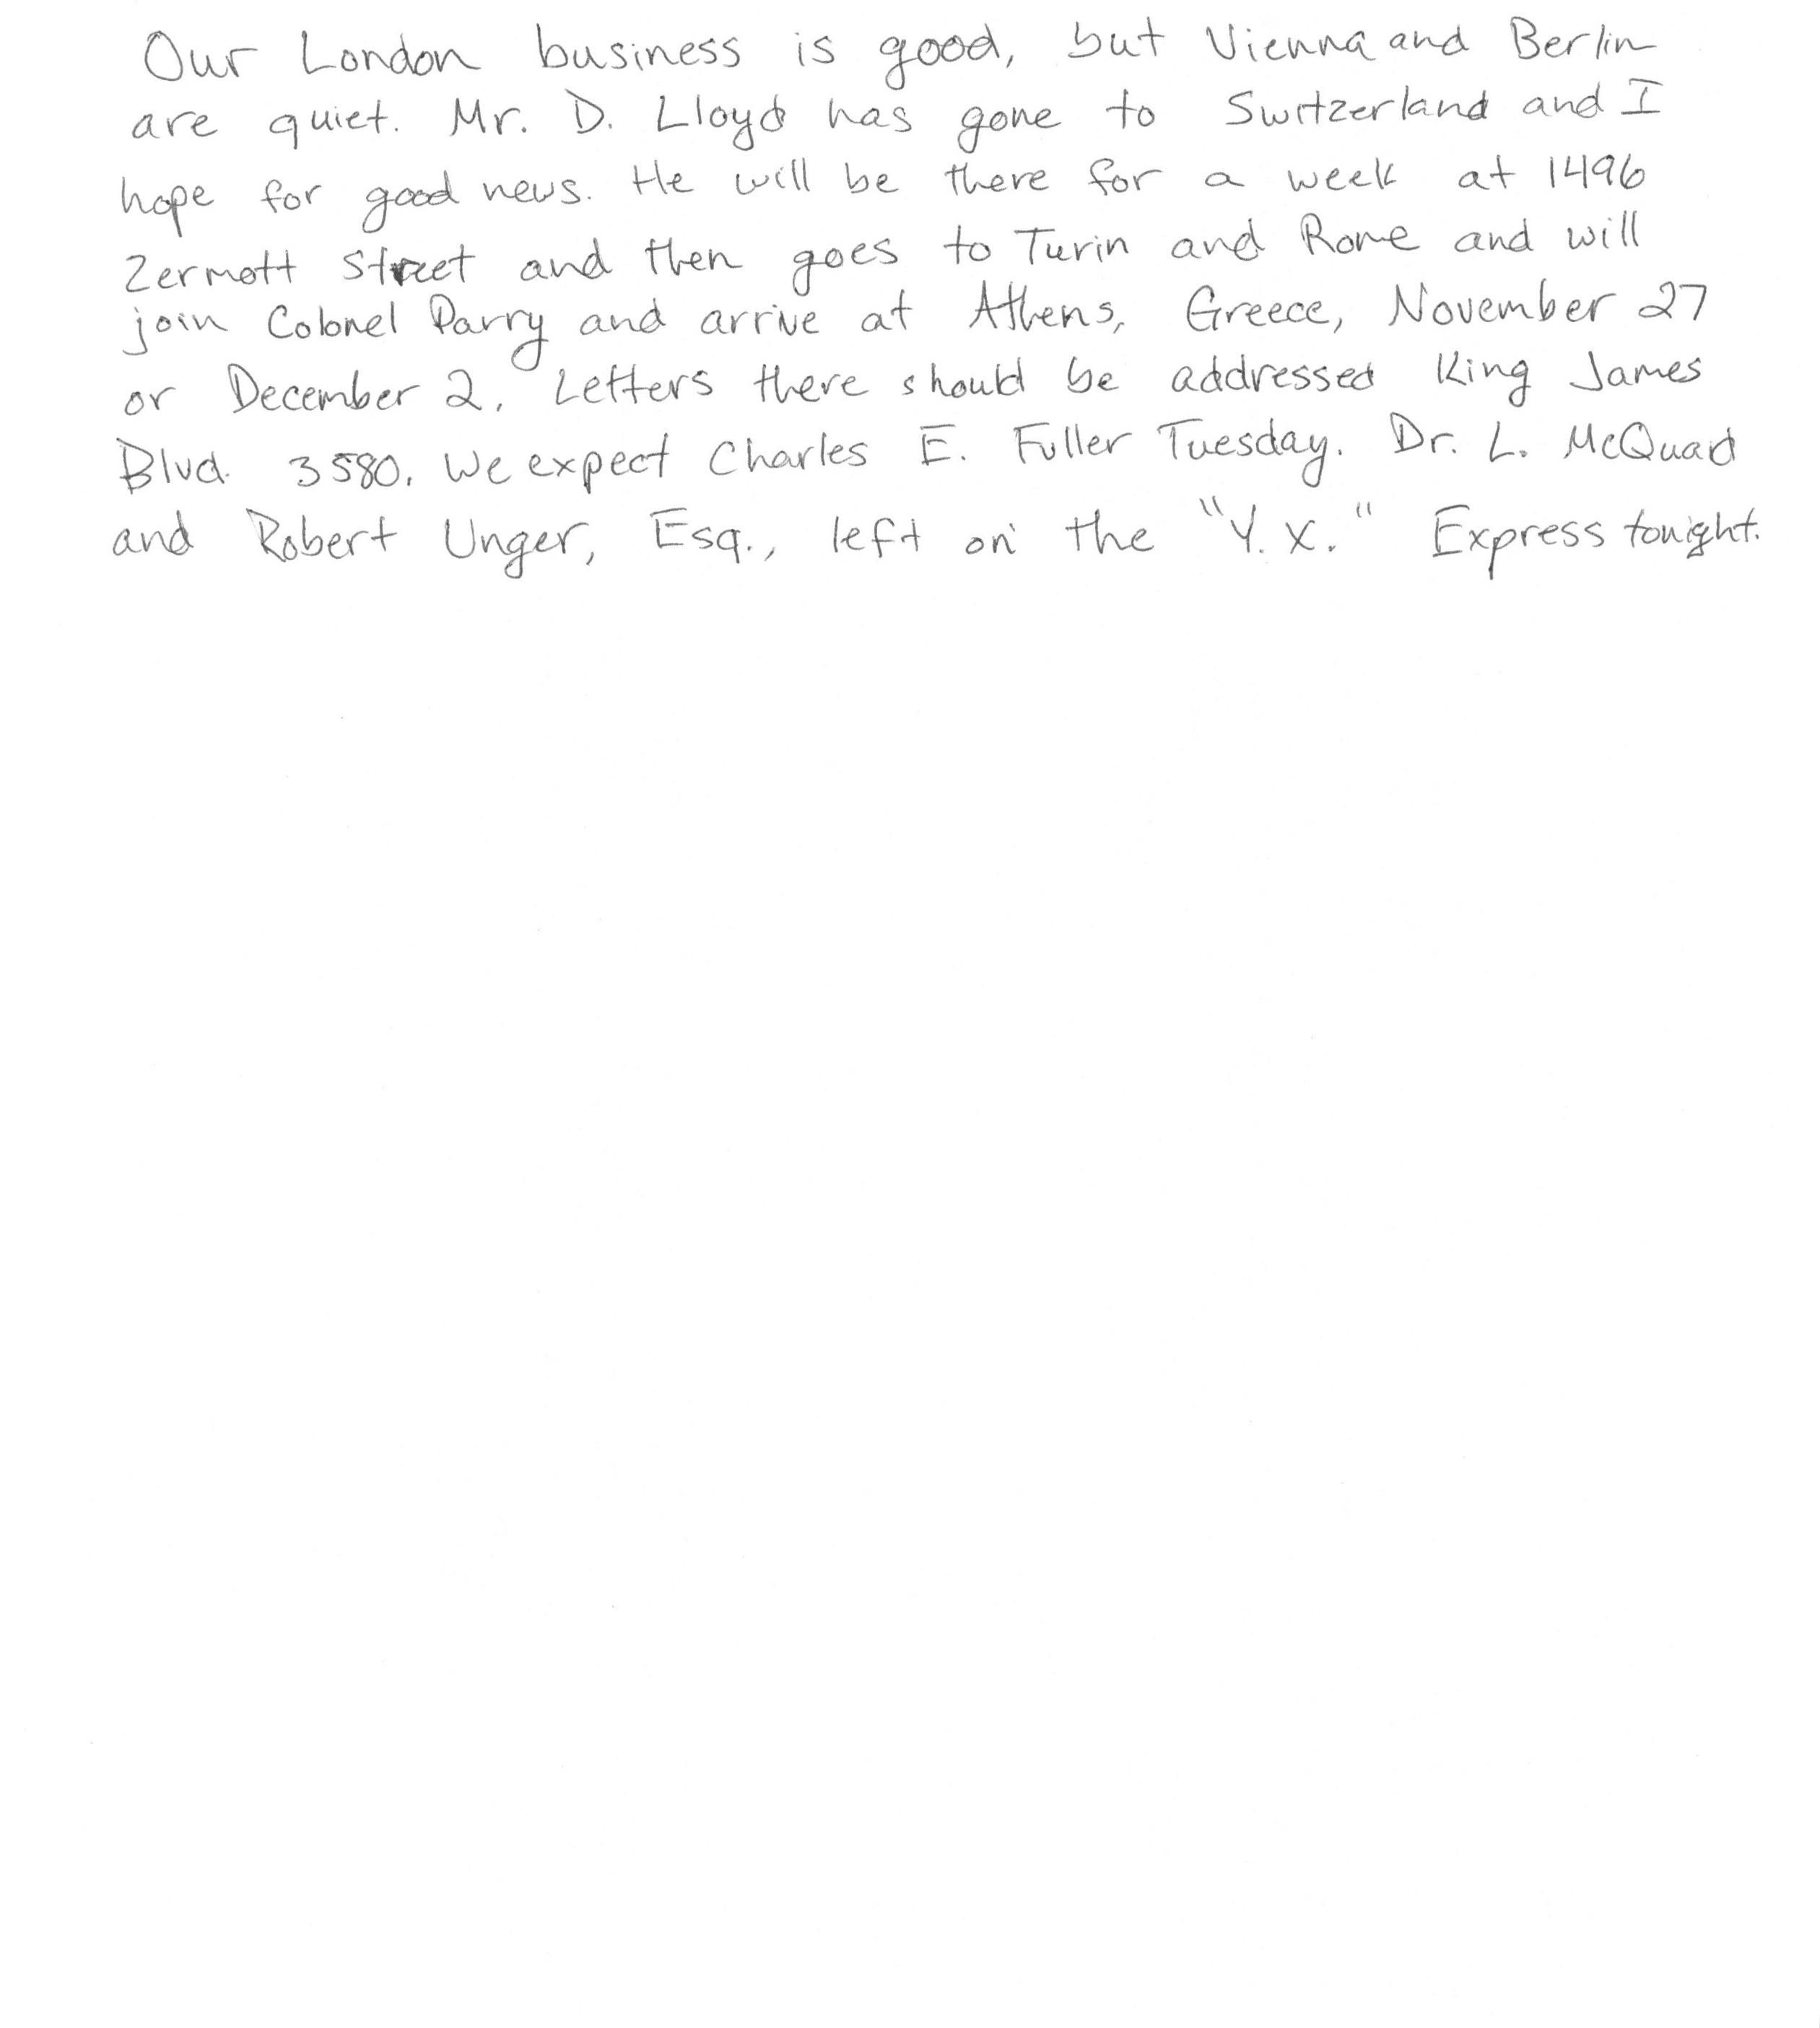 Our London business is good, but Vienna and Berlin
are quiet. Mr. D. Lloyd has gone to Switzerland and I
hope for good news. He will be there for a week at 1496
Zermott Street and then goes to Turin and Rome and will
join Colonel Parry and arrive at Athens, Greece, November 27
or December 2. Letters there should be addressed King James
Blvd. 3580. We expect Charles E. Fuller Tuesday. Dr. L. McQuad
and Robert Unger, Esq., left on the "Y. X." Express tonight.